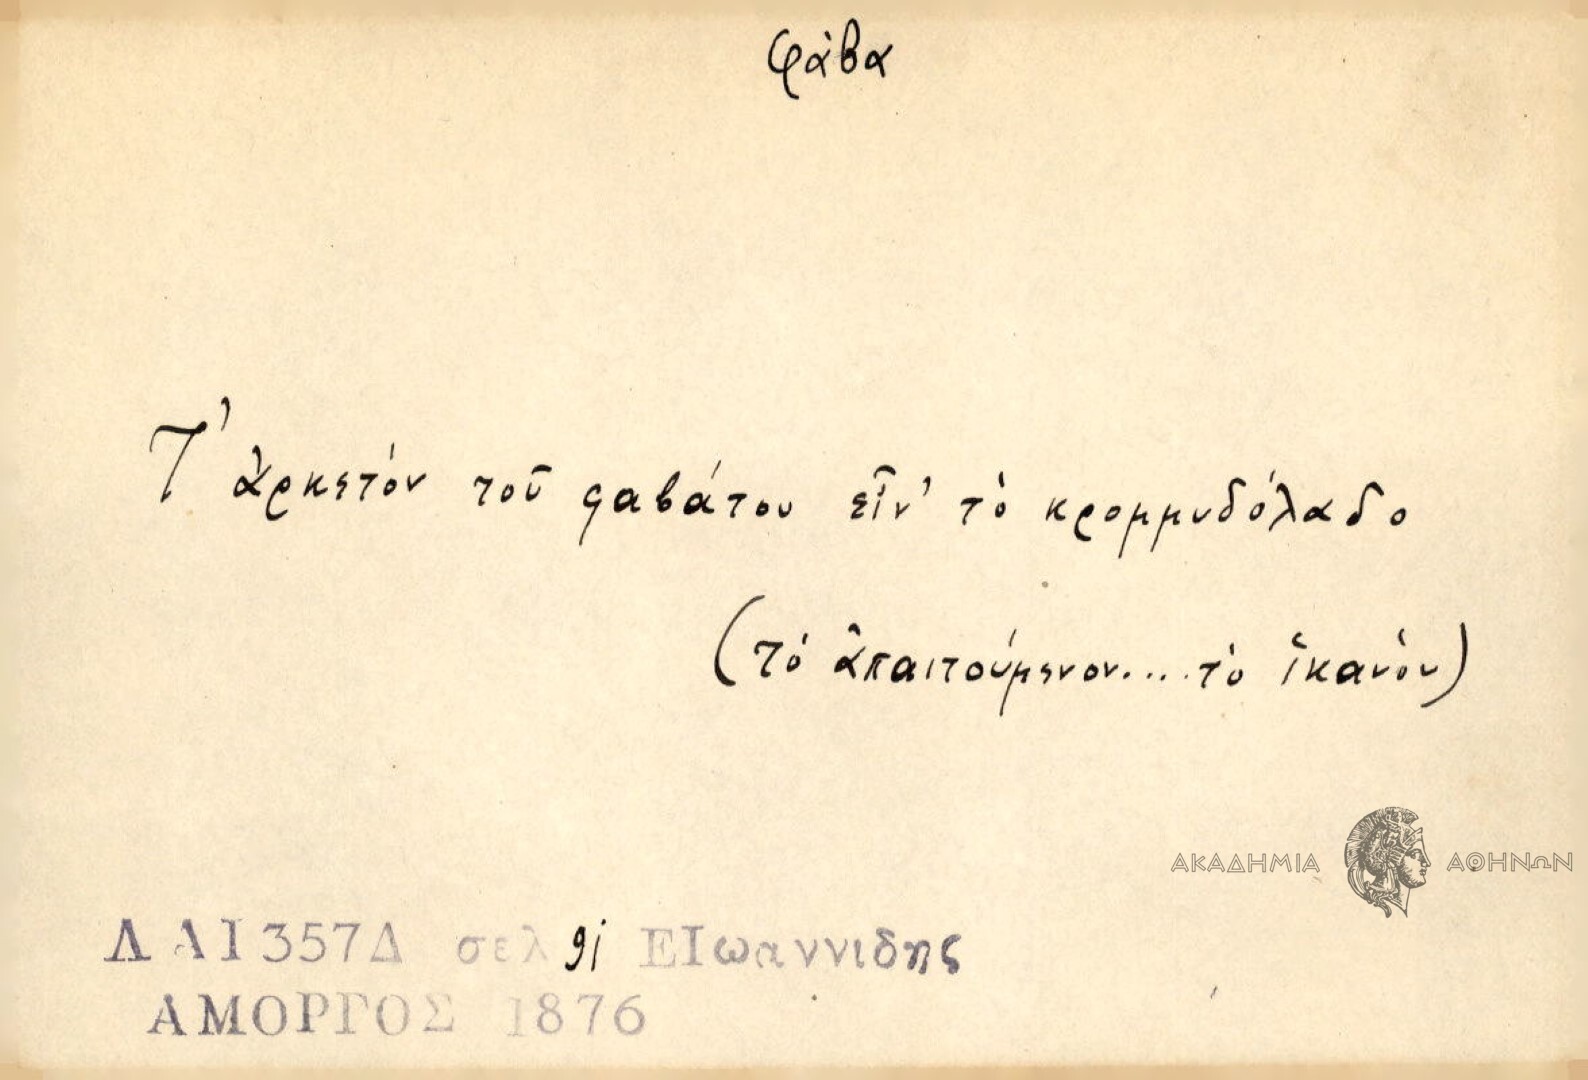 φάβα
Τ' ἀρκετὸν τοῦ φαβάτου εἶν' τὸ κρομμυδόλαδο
(τὸ ἀπαιτούμενον.... τὸ ἱκανὸν)
ΑΚΑΔΗΜΙΑ ΑΘΗΝΩΝ
ΛΑΙ357Δ σελ 91 ΕΙωαννιδης
ΑΜΟΡΓΟΣ 1876